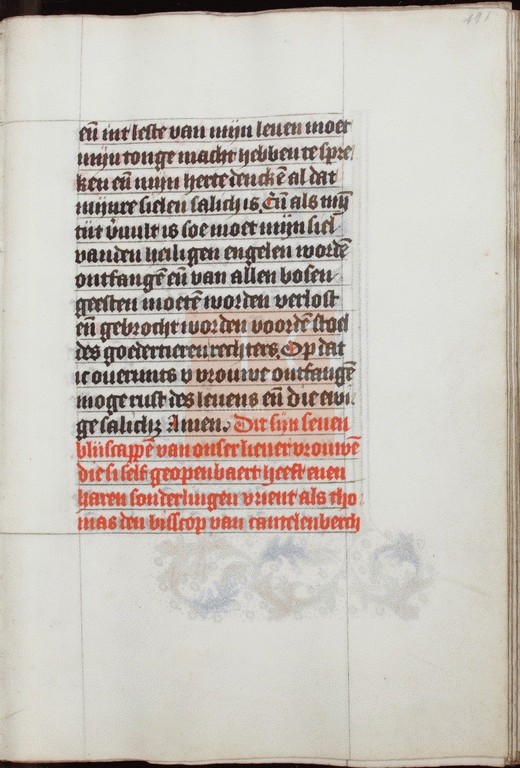 191
en̄ int leste van mijn leuen moet
mijn tonge macht hebben te spre
ken en̄ mijn herte dencke̅ al dat
mijnre sielen salich is. En̄ als mijn
tijt v̄uult is soe moet mijn siel
vanden heiligen engelen worde̅
ontfange̅ en̄ van allen bosen
geesten moete̅ worden verlost
en̄ gebrocht worden voorde̅ stoel
des goedertieren rechters. Op dat
ic ouermits v vrouwe ontfange̅
moge rust des leuens en̄ die ewi
ge salich; Amen. Dit sijn seuen
blijscappe̅ van onser lieuer vrouwe̅
die si self geopenbaert heeft enen
haren sonderlingen vrient als tho
mas den bisscop van cantelenberch